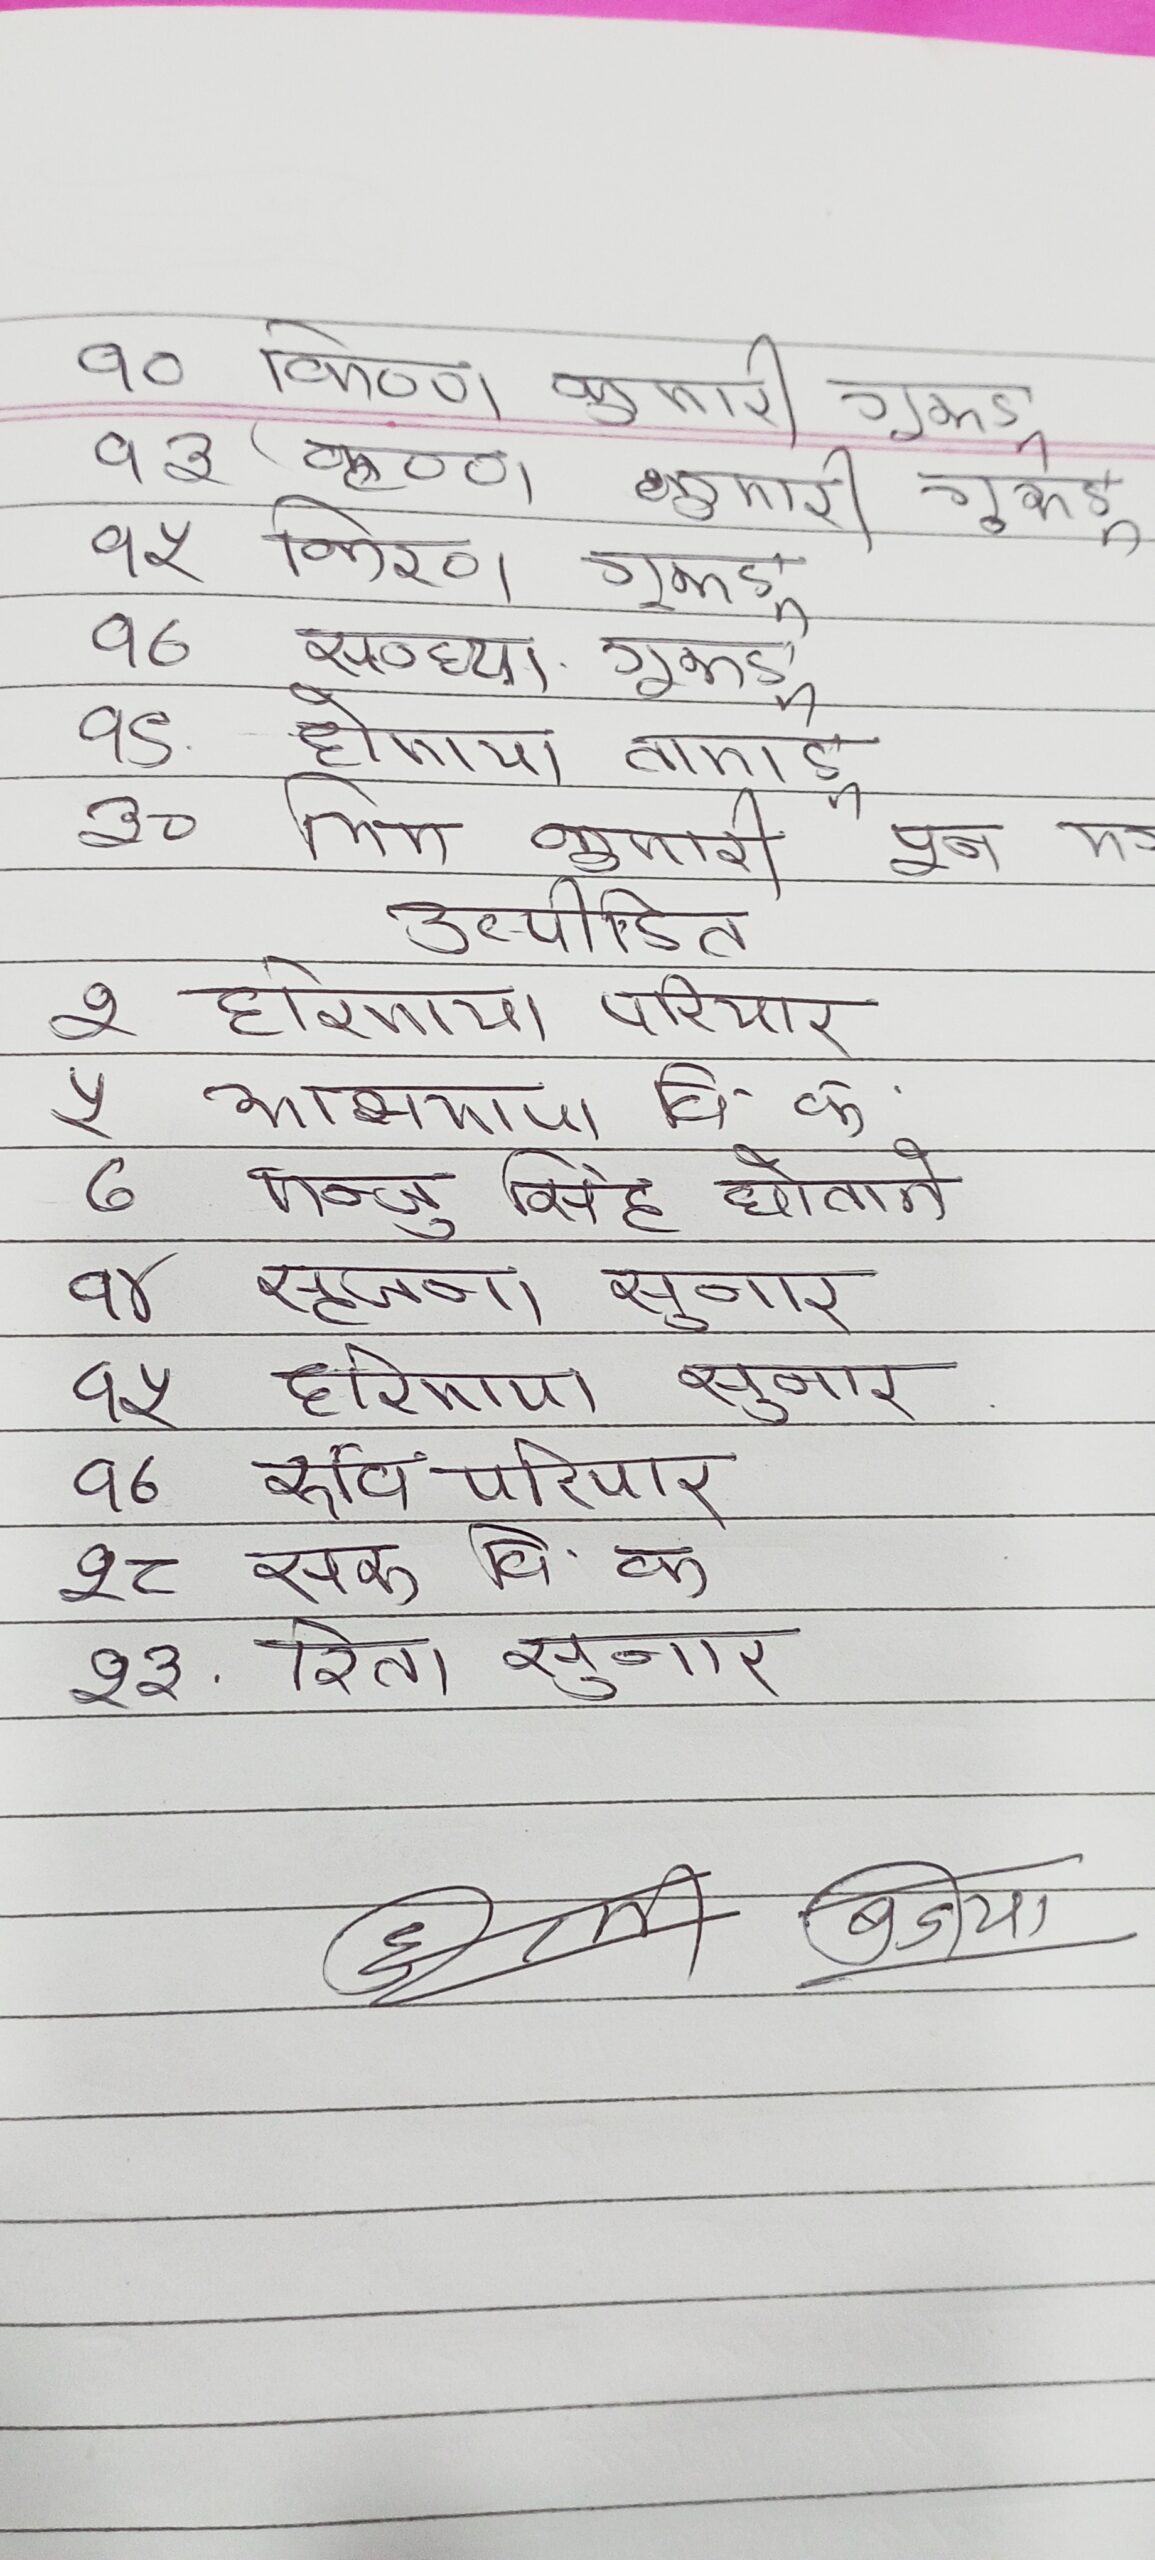 १० किरण कुमारी गुरूङ्ग
१३ कृष्ण कुमारी गुरूङ्ग
१५ किरण गुरूङ्ग
१६ सन्ध्या गुरूङ्ग
१९. होमाया तामाङ्ग
३० लिम कुमारी पून
उत्पीडित
२ हरिमाया परियार
५ आसमाया वि. क.
६ मन्जु सिंह घोताने
१४ सृजना सुनार
१५ हरिमाया सुनार
१६ परियार
२८ वि. क
२३. रिता सुनार